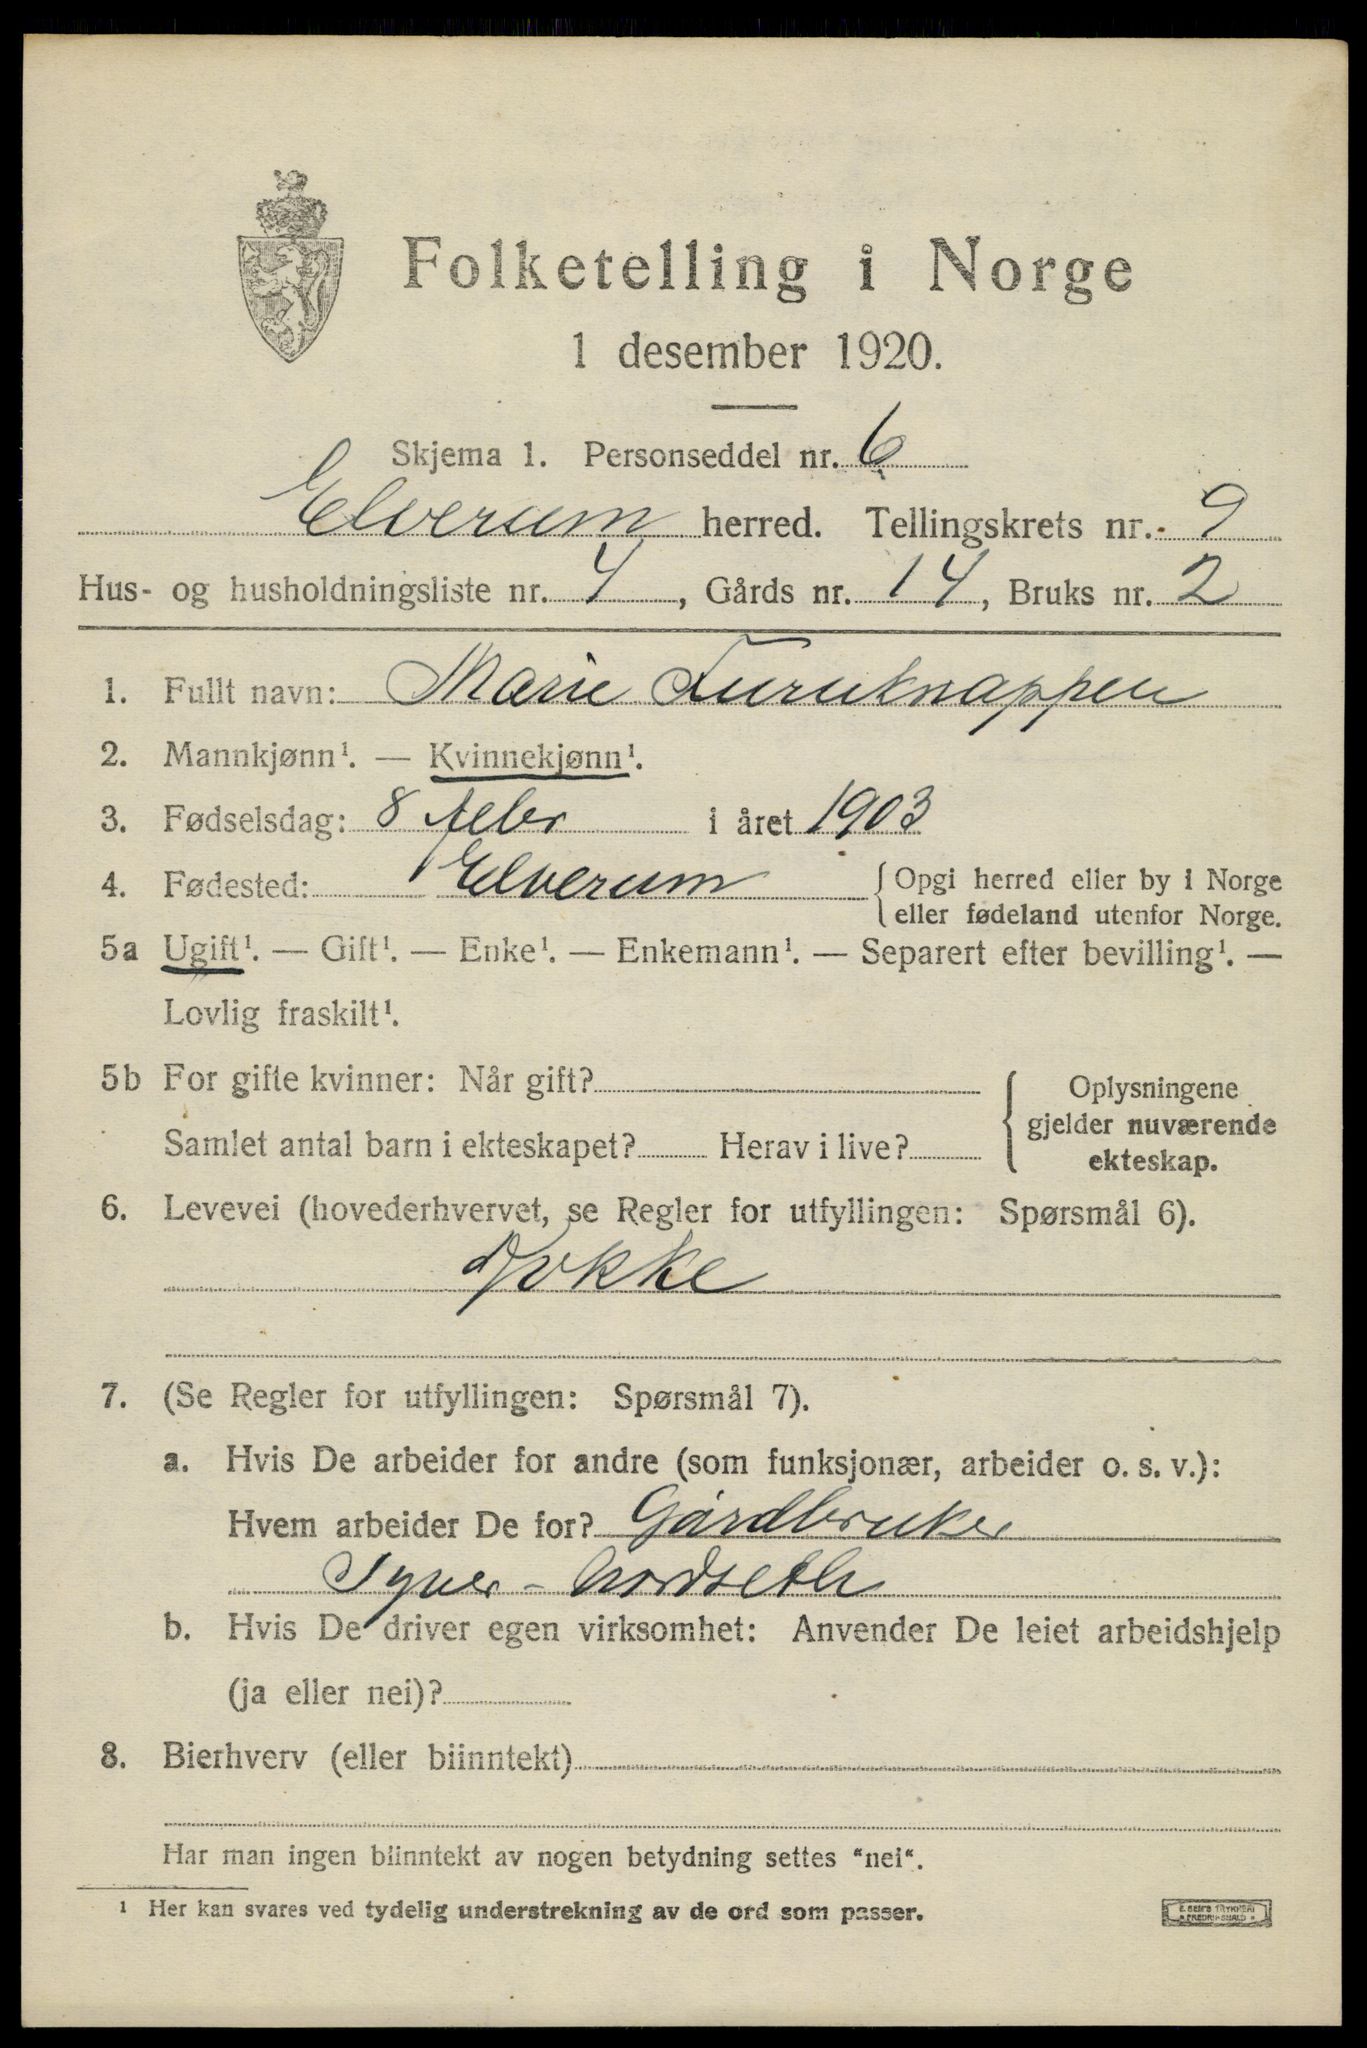 Folketelling i Norge
1 desember 1920.
Skjema 1. Personseddel nr. 6
Elverum herred. Tellingskrets nr. 9
Hus- og husholdningsliste nr. 4, Gårds nr. 14, Bruks nr. 2
1. Fullt navn: Marie Furuknappen
2. Mannkjønn¹. — Kvinnekjønn¹.
3. Fødselsdag: 8 febr i året 1903
4. Fødested: Elverum {Opgi herred eller by i Norge
eller fødeland utenfor Norge.
5a Ugift¹. — Gift¹. — Enke¹. — Enkemann¹. — Separert efter bevilling¹. —
Lovlig fraskilt¹.
5b For gifte kvinner: Når gift?
Samlet antal barn i ekteskapet? Herav i live?
Oplysningene
gjelder nuværende
ekteskap.
6. Levevei (hovederhvervet, se Regler for utfyllingen: Spørsmål 6).
Kokke
7. (Se Regler for utfyllingen: Spørsmål 7).
a. Hvis De arbeider for andre (som funksjonær, arbeider o. s. v.):
Hvem arbeider De for? Gårdbruker
Syver - Nordseth
b. Hvis De driver egen virksomhet: Anvender De leiet arbeidshjelp
(ja eller nei)?
8. Bierhverv (eller biinntekt)
Har man ingen biinntekt av nogen betydning settes "nei".
¹ Her kan svares ved tydelig understrekning av de ord som passer.